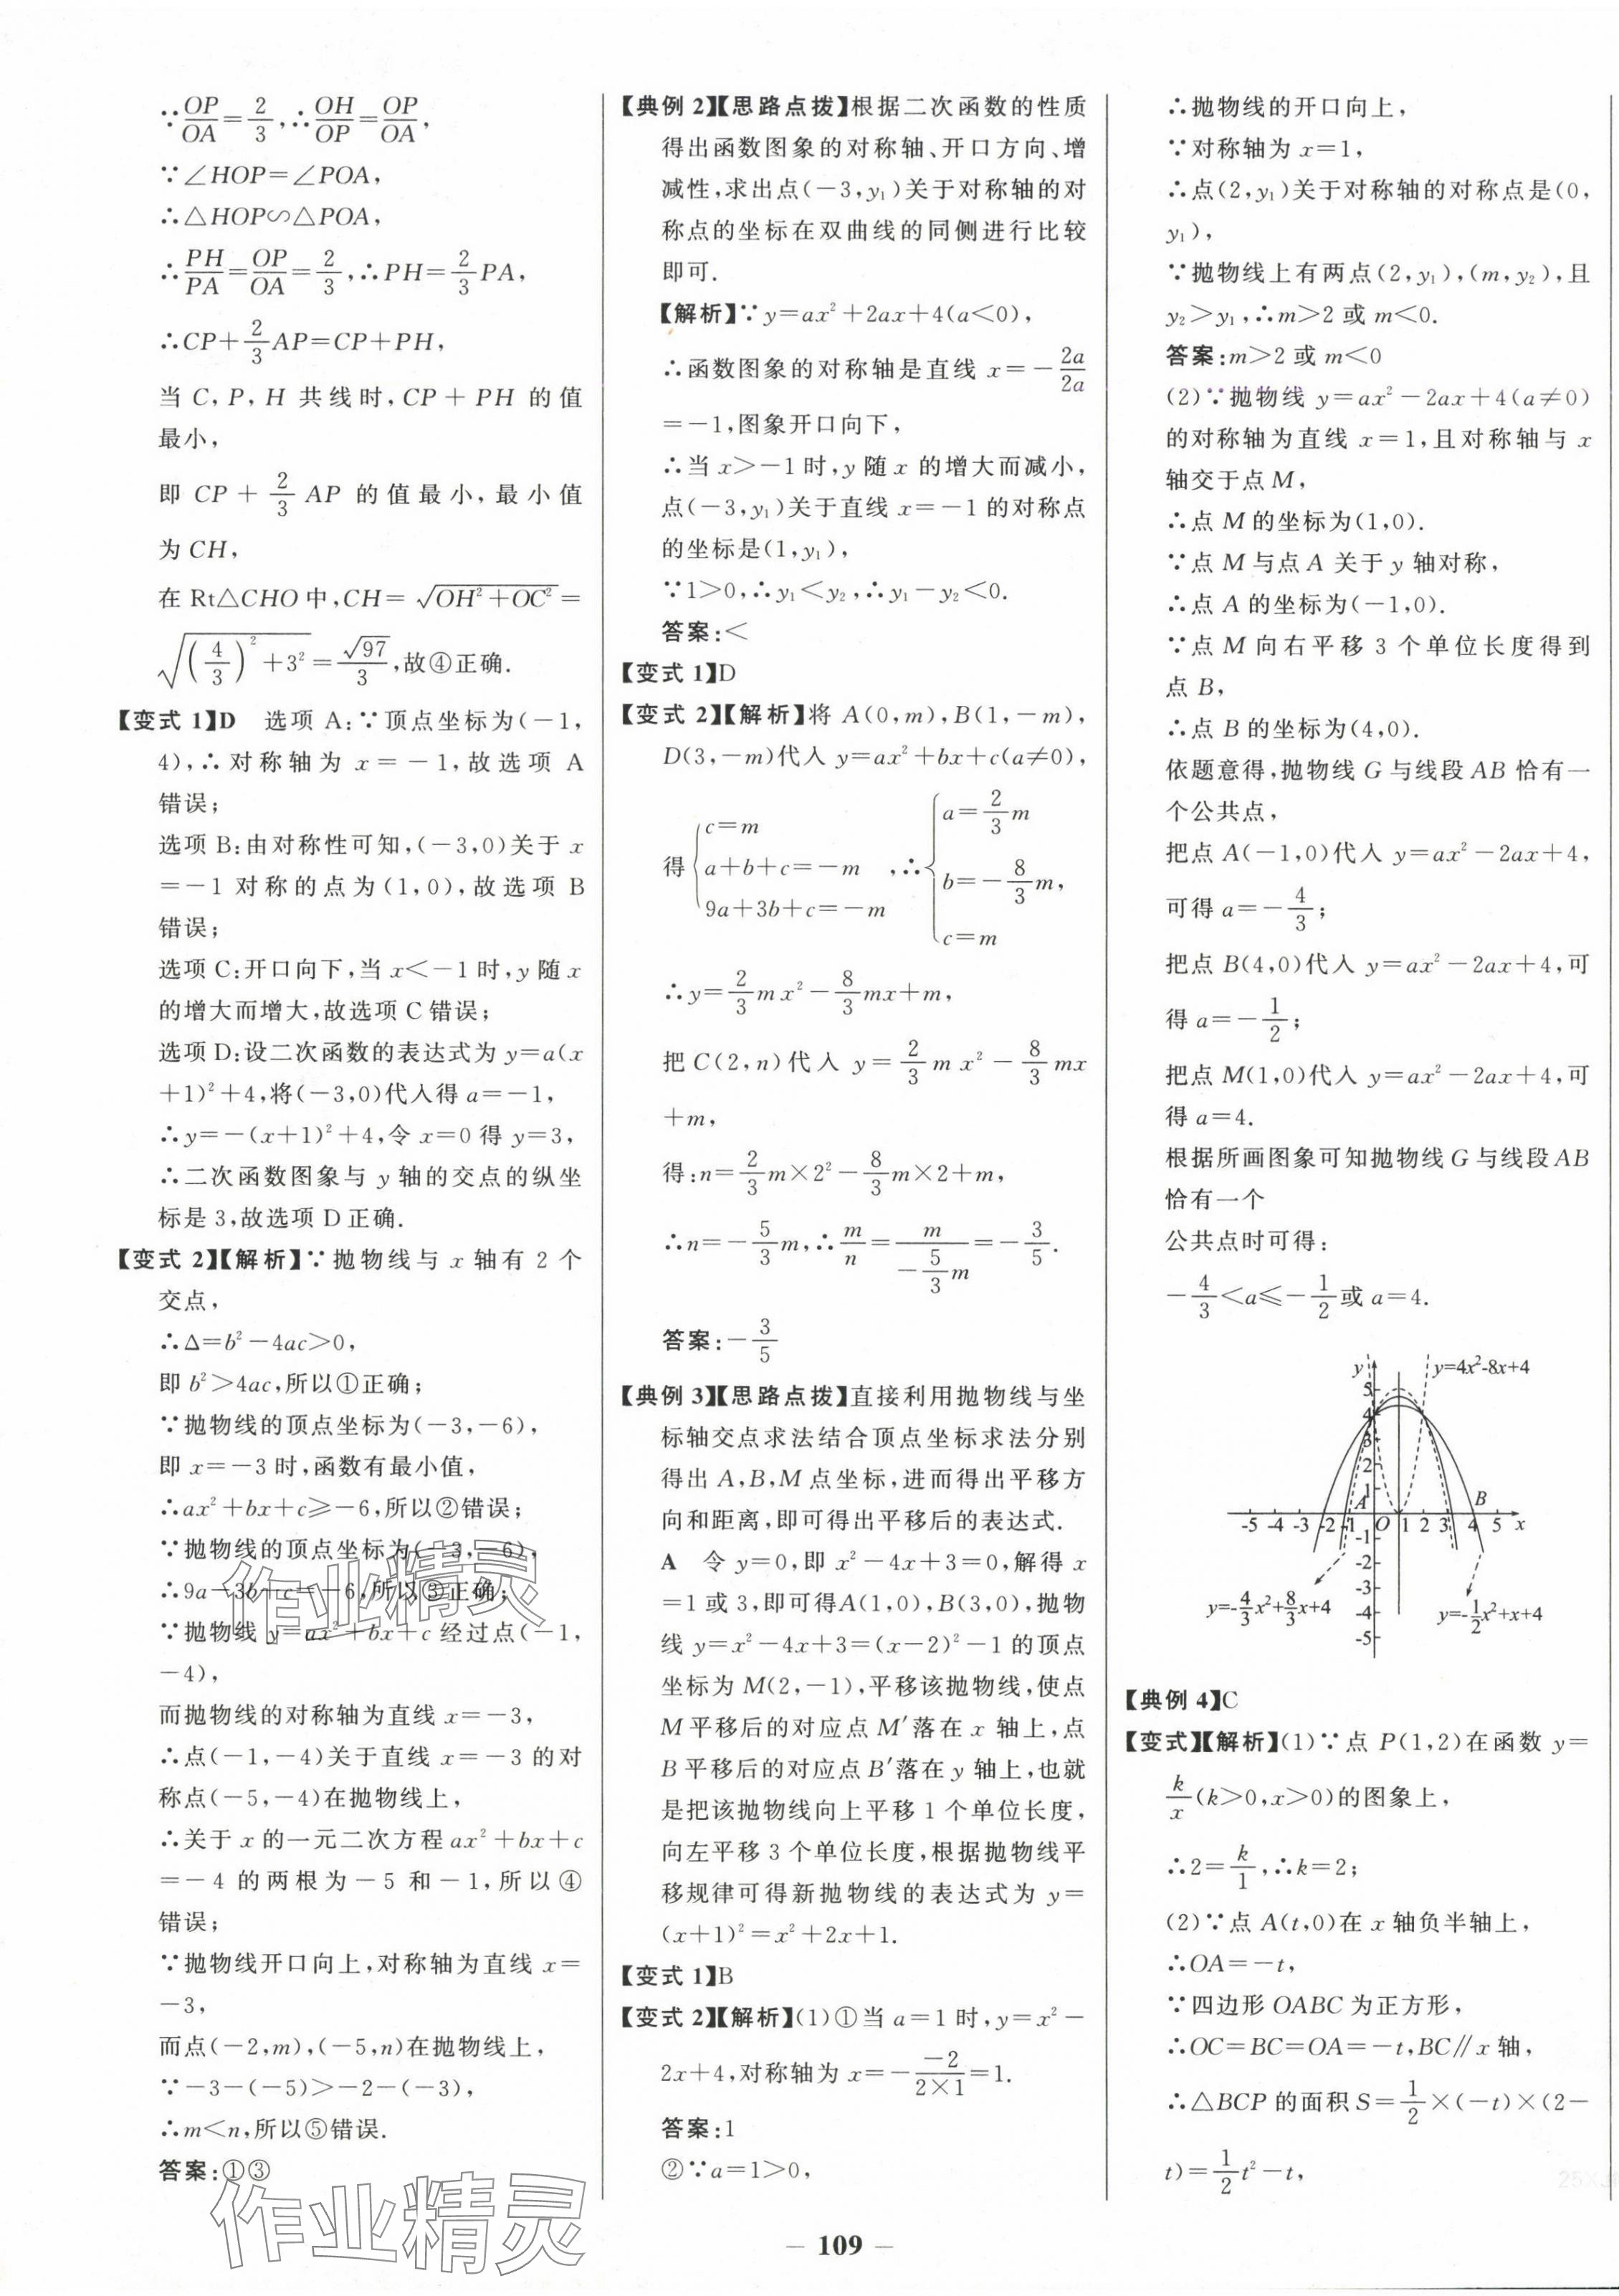 ∵OP/OA=2/3,∴OH/OP=OP/OA,
∵∠HOP=∠POA,
∴△HOP∽△POA,
∴PH/PA=OP/OA=2/3,∴PH=2/3PA,
∴CP+2/3AP=CP+PH,
当 C,P,H 共线时,CP+PH 的值
最小,
即 CP+2/3AP 的值最小,最小值
为 CH,
在 Rt△CHO 中,CH=√(OH²+OC²)=
√((4/3)²+3²)=√97/3,故④正确.
【变式 1】D 选项 A:∵顶点坐标为(-1,
4),∴对称轴为 x=-1,故选项 A
错误;
选项 B:由对称性可知,(-3,0)关于 x
=-1 对称的点为(1,0),故选项 B
错误;
选项 C:开口向下,当 x<-1 时,y 随 x
的增大而增大,故选项 C 错误;
选项 D:设二次函数的表达式为 y=a(x
+1)²+4,将(-3,0)代入得 a=-1,
∴y=-(x+1)²+4,令 x=0 得 y=3,
∴二次函数图象与 y 轴的交点的纵坐
标是 3,故选项 D 正确.
【变式 2】【解析】∵抛物线与 x 轴有 2 个
交点,
∴Δ=b²-4ac>0,
即 b²>4ac,所以①正确;
∵抛物线的顶点坐标为(-3,-6),
即 x=-3 时,函数有最小值,
∴ax²+bx+c≥-6,所以②错误;
∵抛物线的顶点坐标为(-3,-6),
∴9a-3b+c=-6,所以③正确;
∵抛物线 y=ax²+bx+c 经过点(-1,
-4),
而抛物线的对称轴为直线 x=-3,
∴点(-1,-4)关于直线 x=-3 的对
称点(-5,-4)在抛物线上,
∴关于 x 的一元二次方程 ax²+bx+c
=-4 的两根为-5 和-1,所以④
错误;
∵抛物线开口向上,对称轴为直线 x=
-3,
而点(-2,m),(-5,n)在抛物线上,
∵-3-(-5)>-2-(-3),
∴m<n,所以⑤错误.
答案:①③
【典例 2】【思路点拨】根据二次函数的性质
得出函数图象的对称轴、开口方向、增
减性,求出点(-3,y₁)关于对称轴的对
称点的坐标在双曲线的同侧进行比较
即可.
【解析】∵y=ax²+2ax+4(a<0),
∴函数图象的对称轴是直线 x=-2a/2a
=-1,图象开口向下,
∴当 x>-1 时,y 随 x 的增大而减小,
点(-3,y₁)关于直线 x=-1 的对称点
的坐标是(1,y₁),
∵1>0,∴y₁<y₂,∴y₁-y₂<0.
答案:<
【变式 1】D
【变式 2】【解析】将 A(0,m),B(1,-m),
D(3,-m)代入 y=ax²+bx+c(a≠0),
得{c=m
a+b+c=-m
9a+3b+c=-m
,∴{a=2/3m
b=-8/3m,
c=m
∴y=2/3mx²-8/3mx+m,
把 C(2,n)代入 y=2/3mx²-8/3mx
+m,
得:n=2/3m×2²-8/3m×2+m,
∴n=-5/3m,∴m/n=m/(-5/3m)=-3/5.
答案:-3/5
【典例 3】【思路点拨】直接利用抛物线与坐
标轴交点求法结合顶点坐标求法分别
得出 A,B,M 点坐标,进而得出平移方
向和距离,即可得出平移后的表达式.
A 令 y=0,即 x²-4x+3=0,解得 x
=1 或 3,即可得A(1,0),B(3,0),抛物
线 y=x²-4x+3=(x-2)²-1 的顶点
坐标为 M(2,-1),平移该抛物线,使点
M 平移后的对应点 M′落在 x 轴上,点
B 平移后的对应点 B′落在 y 轴上,也就
是把该抛物线向上平移 1 个单位长度,
向左平移 3 个单位长度,根据抛物线平
移规律可得新抛物线的表达式为 y=
(x+1)²=x²+2x+1.
【变式 1】B
【变式 2】【解析】(1)①当 a=1 时,y=x²-
2x+4,对称轴为 x=-(-2)/(2×1)=1.
答案:1
②∵a=1>0,
∴抛物线的开口向上,
∵对称轴为 x=1,
∴点(2,y₁)关于对称轴的对称点是(0,
y₁),
∵抛物线上有两点(2,y₁),(m,y₂),且
y₂>y₁,∴m>2 或 m<0.
答案:m>2 或 m<0
(2)∵抛物线 y=ax²-2ax+4(a≠0)
的对称轴为直线 x=1,且对称轴与 x
轴交于点 M,
∴点 M 的坐标为(1,0).
∵点 M 与点 A 关于 y 轴对称,
∴点 A 的坐标为(-1,0).
∵点 M 向右平移 3 个单位长度得到
点 B,
∴点 B 的坐标为(4,0).
依题意得,抛物线 G 与线段 AB 恰有一
个公共点,
把点 A(-1,0)代入 y=ax²-2ax+4,
可得 a=-4/3;
把点 B(4,0)代入 y=ax²-2ax+4,可
得 a=-1/2;
把点 M(1,0)代入 y=ax²-2ax+4,可
得 a=4.
根据所画图象可知抛物线 G 与线段 AB
恰有一个
公共点时可得:
-4/3<a≤-1/2或 a=4.
y y=4x²-8x+4
5
4
3
2
1
A B
-5 -4 -3 -2 -1 O 1 2 3 4 5 x
-1
-2
-3
-4
-5
y=-4/3x²+8/3x+4
y=-1/2x²+x+4
【典例 4】C
【变式】【解析】(1)∵点 P(1,2)在函数 y=
k/x(k>0,x>0)的图象上,
∴2=k/1,∴k=2;
(2)∵点 A(t,0)在 x 轴负半轴上,
∴OA=-t,
∵四边形 OABC 为正方形,
∴OC=BC=OA=-t,BC∥x 轴,
∴△BCP 的面积 S=1/2×(-t)×(2-
t)=1/2t²-t,
作业精灵
作业精灵
— 109 —